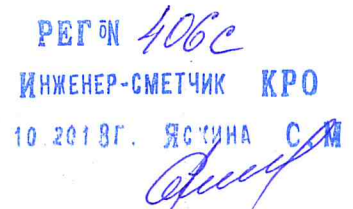 РЕГ №N 406с
ИНЖЕНЕР-СМЕТЧИК КРО
10.2018г. ЯСКИНА С.М